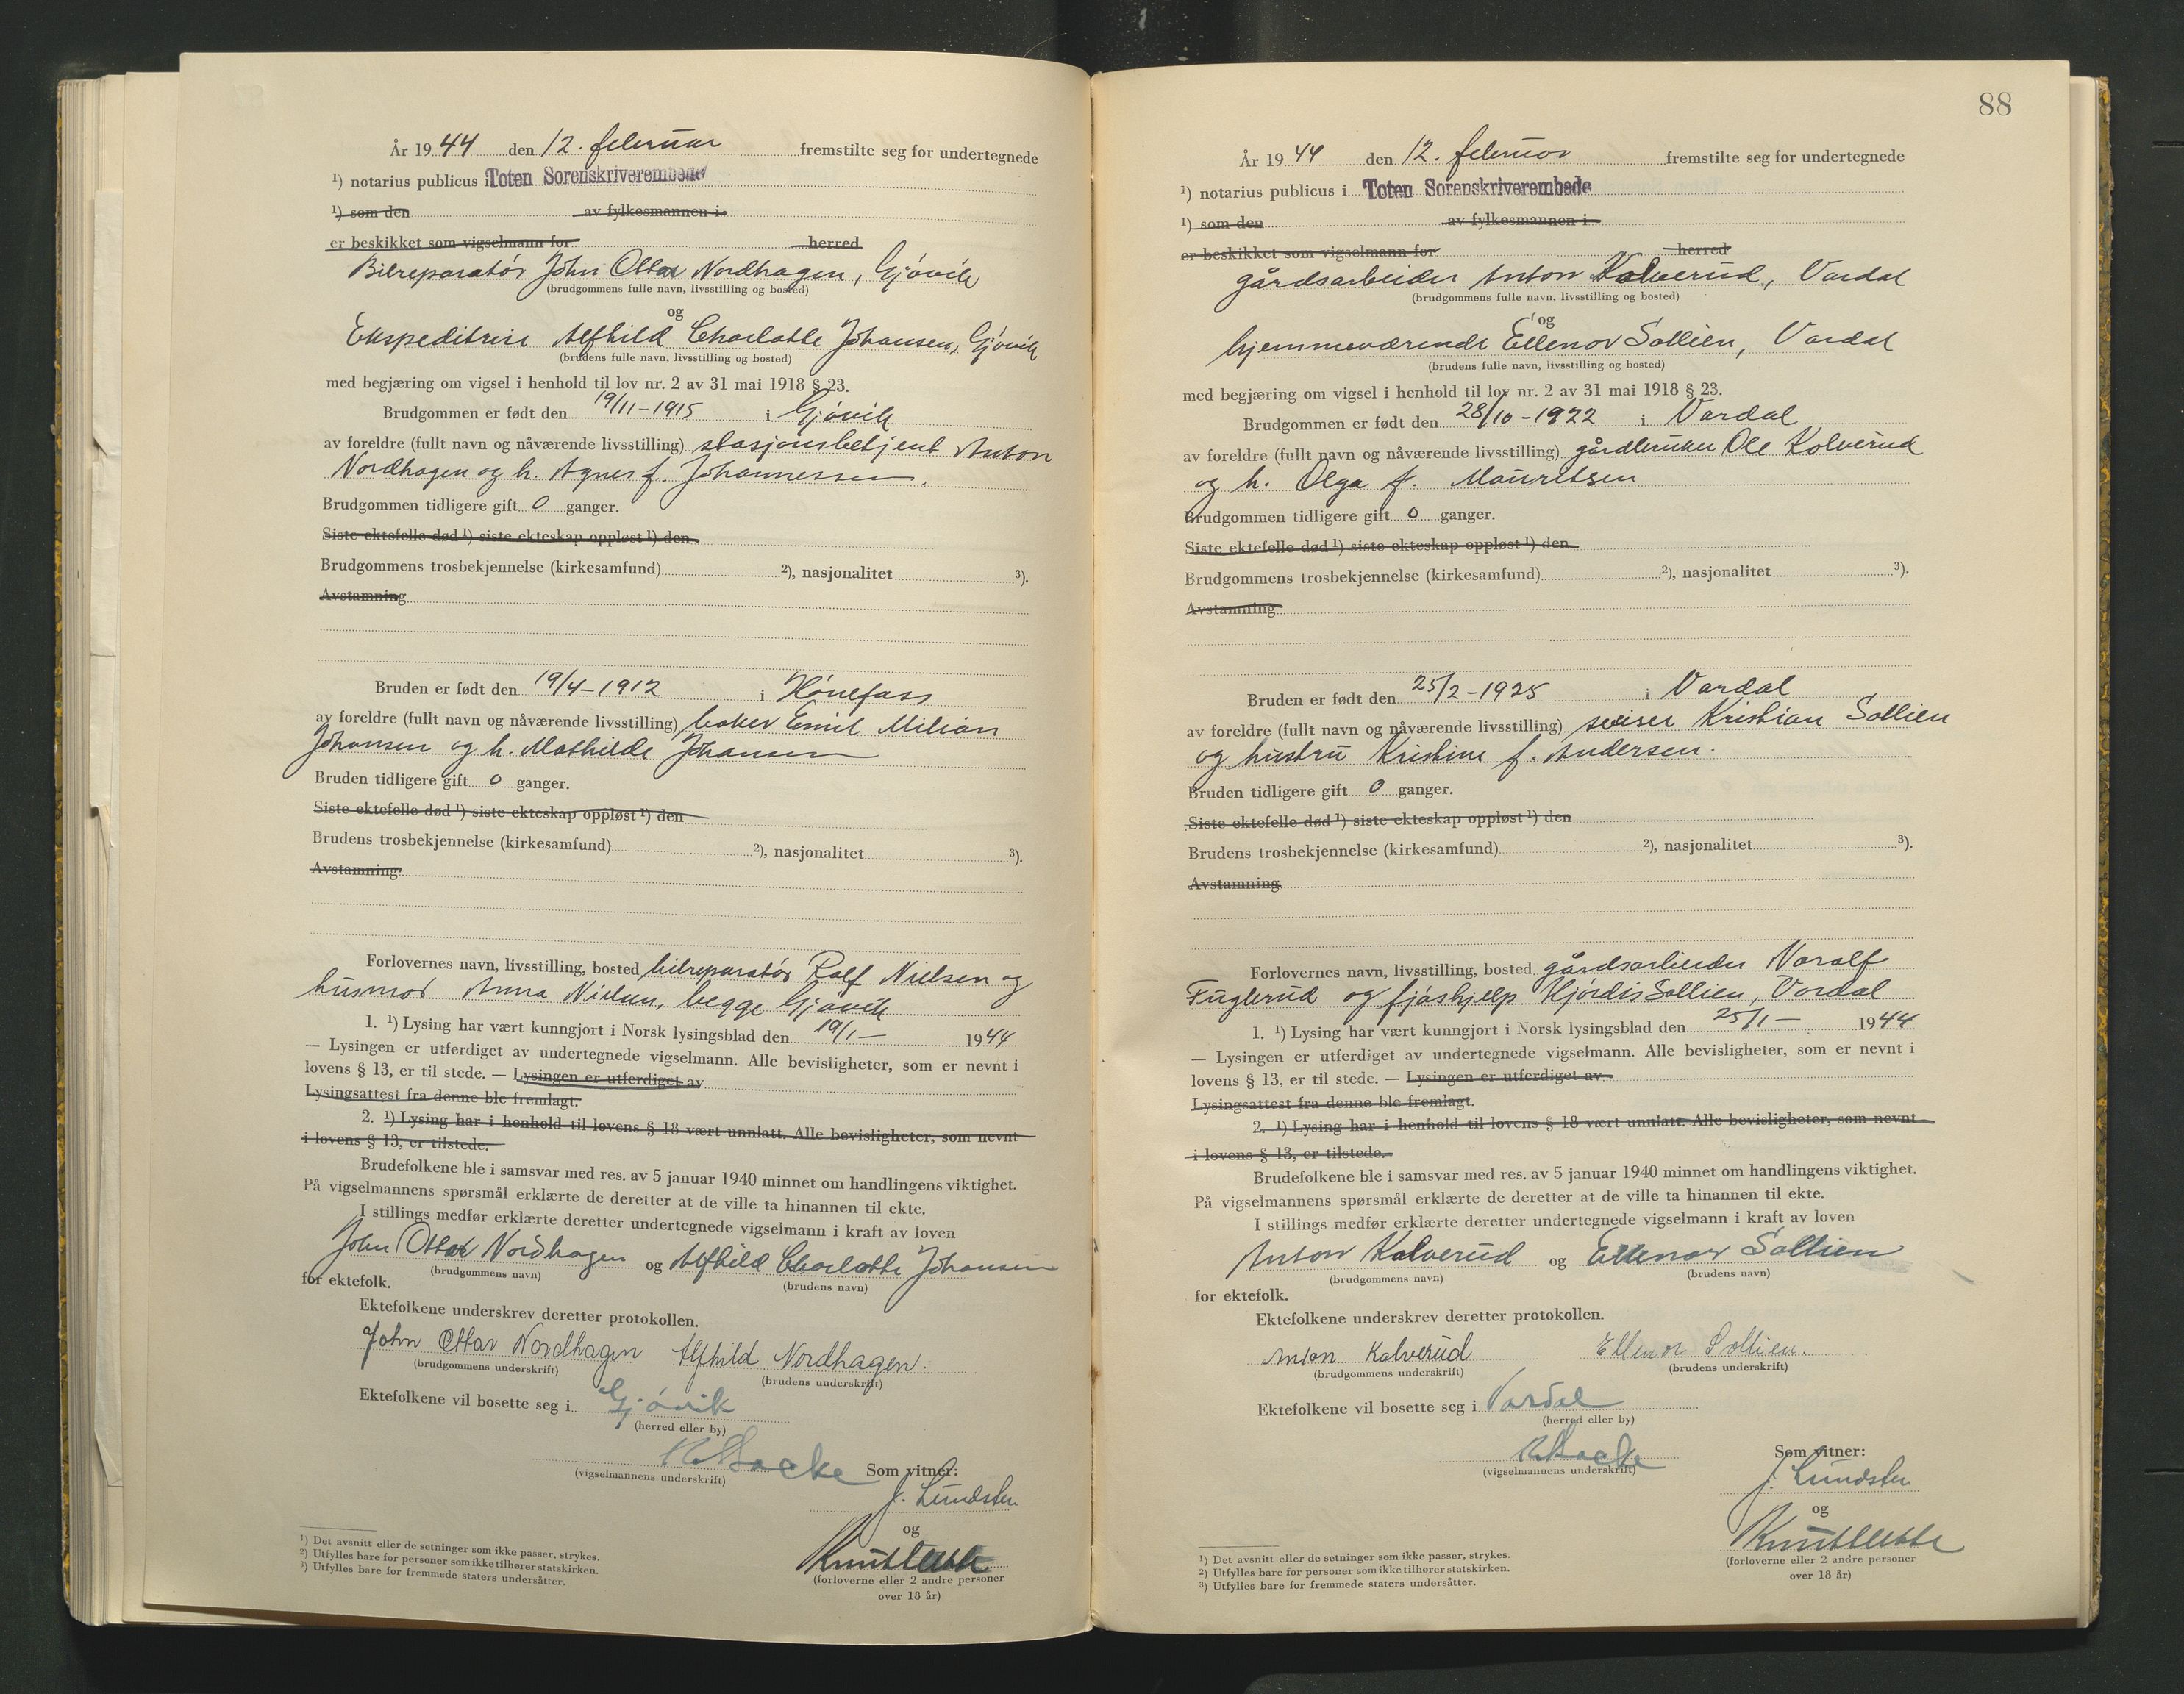 År 1944 den 12. februar fremstilte seg for undertegnede
¹) notarius publicus i Toten Sorenskriverembede
¹) som den av fylkesmannen i
er beskikket som vigselmann for herred
Bilreparatør John Ottar Nordhagen, Gjøvik
(brudgommens fulle navn, livsstilling og bosted)
og
Ekspeditrise Alfhild Charlotte Johansen, Gjøvik
(brudens fulle navn, livsstilling og bosted)
med begjæring om vigsel i henhold til lov nr. 2 av 31 mai 1918 § 23.
Brudgommen er født den 19/11-1915 i Gjøvik
av foreldre (fullt navn og nåværende livsstilling) stasjonsbetjent Anton
Nordhagen og h. Agnes f. Johannessen.
Brudgommen tidligere gift 0 ganger.
Siste ektefelle død ¹) siste ekteskap oppløst ¹) den
Brudgommens trosbekjennelse (kirkesamfund) ²), nasjonalitet ³).
Avstamning
Bruden er født den 19/4-1912 i Hønefoss
av foreldre (fullt navn og nåværende livsstilling) baker Emil Milian
Johansen og h. Mathilde Johansen
Bruden tidligere gift 0 ganger.
Siste ektefelle død ¹) siste ekteskap oppløst ¹) den
Brudens trosbekjennelse (kirkesamfund) ²), nasjonalitet ³).
Avstamning
Forlovernes navn, livsstilling, bosted bilreparatør Rolf Nielsen og
husmor Anna Nielsen, begge Gjøvik
1. ¹) Lysing har vært kunngjort i Norsk lysingsblad den 19/1- 1944
— Lysingen er utferdiget av undertegnede vigselmann. Alle bevisligheter, som er nevnt i
lovens § 13, er til stede. — Lysingen er utferdiget av
Lysingsattest fra denne ble fremlagt.
2. ¹) Lysing har i henhold til lovens § 18 vært unnlatt. Alle bevisligheter, som nevnt
i lovens § 13, er tilstede.
Brudefolkene ble i samsvar med res. av 5 januar 1940 minnet om handlingens viktighet.
På vigselmannens spørsmål erklærte de deretter at de ville ta hinannen til ekte.
I stillings medfør erklærte deretter undertegnede vigselmann i kraft av loven
John Ottar Nordhagen og Alfhild Charlotte Johansen
(brudgommens navn) (brudens navn)
for ektefolk.
Ektefolkene underskrev deretter protokollen.
John Ottar Nordhagen Alfhild Nordhagen.
(brudgommens underskrift) (brudens underskrift)
Ektefolkene vil bosette seg i Gjøvik
(herred eller by)
Som vitner:
(vigselmannens underskrift)
J. Lundsten
og
Knut
(forloverne eller 2 andre personer
over 18 år)
¹) Det avsnitt eller de setninger som ikke passer, strykes.
²) Utfylles bare for personer som ikke tilhører statskirken.
³) Utfylles bare for fremmede staters undersåtter.
88
År 1944 den 12. februar fremstilte seg for undertegnede
¹) notarius publicus i Toten Sorenskriverembede
¹) som den av fylkesmannen i
er beskikket som vigselmann for herred
gårdsarbeider Anton Kalverud, Vardal
(brudgommens fulle navn, livsstilling og bosted)
og
hjemmeværende Ellenor Sollien, Vardal
(brudens fulle navn, livsstilling og bosted)
med begjæring om vigsel i henhold til lov nr. 2 av 31 mai 1918 § 23.
Brudgommen er født den 28/10-1922 i Vardal
av foreldre (fullt navn og nåværende livsstilling) gårdbruker Ole Kolverud
og h. Olga f. Mauritsen
Brudgommen tidligere gift 0 ganger.
Siste ektefelle død ¹) siste ekteskap oppløst ¹) den
Brudgommens trosbekjennelse (kirkesamfund) ²), nasjonalitet ³).
Avstamning
Bruden er født den 25/2-1925 i Vardal
av foreldre (fullt navn og nåværende livsstilling) sveiser Kristian Sollien
og hustru Kristine f. Andersen.
Bruden tidligere gift 0 ganger.
Siste ektefelle død ¹) siste ekteskap oppløst ¹) den
Brudens trosbekjennelse (kirkesamfund) ²), nasjonalitet ³).
Avstamning
Forlovernes navn, livsstilling, bosted gårdsarbeider Noralf
Fuglerud og fjøshjelp Hjørdis Sollien, Vardal
1. ¹) Lysing har vært kunngjort i Norsk lysingsblad den 25/1- 1944
— Lysingen er utferdiget av undertegnede vigselmann. Alle bevisligheter, som er nevnt i
lovens § 13, er til stede. — Lysingen er utferdiget av
Lysingsattest fra denne ble fremlagt.
2. ¹) Lysing har i henhold til lovens § 18 vært unnlatt. Alle bevisligheter, som nevnt
i lovens § 13, er tilstede.
Brudefolkene ble i samsvar med res. av 5 januar 1940 minnet om handlingens viktighet.
På vigselmannens spørsmål erklærte de deretter at de ville ta hinannen til ekte.
I stillings medfør erklærte deretter undertegnede vigselmann i kraft av loven
Anton Kalverud og Ellenor Sollien
(brudgommens navn) (brudens navn)
for ektefolk.
Ektefolkene underskrev deretter protokollen.
Anton Kalverud Ellenor Sollien.
(brudgommens underskrift) (brudens underskrift)
Ektefolkene vil bosette seg i Vardal
(herred eller by)
Som vitner:
(vigselmannens underskrift)
J. Lundsten
og
Knut
(forloverne eller 2 andre personer
over 18 år)
¹) Det avsnitt eller de setninger som ikke passer, strykes.
²) Utfylles bare for personer som ikke tilhører statskirken.
³) Utfylles bare for fremmede staters undersåtter.